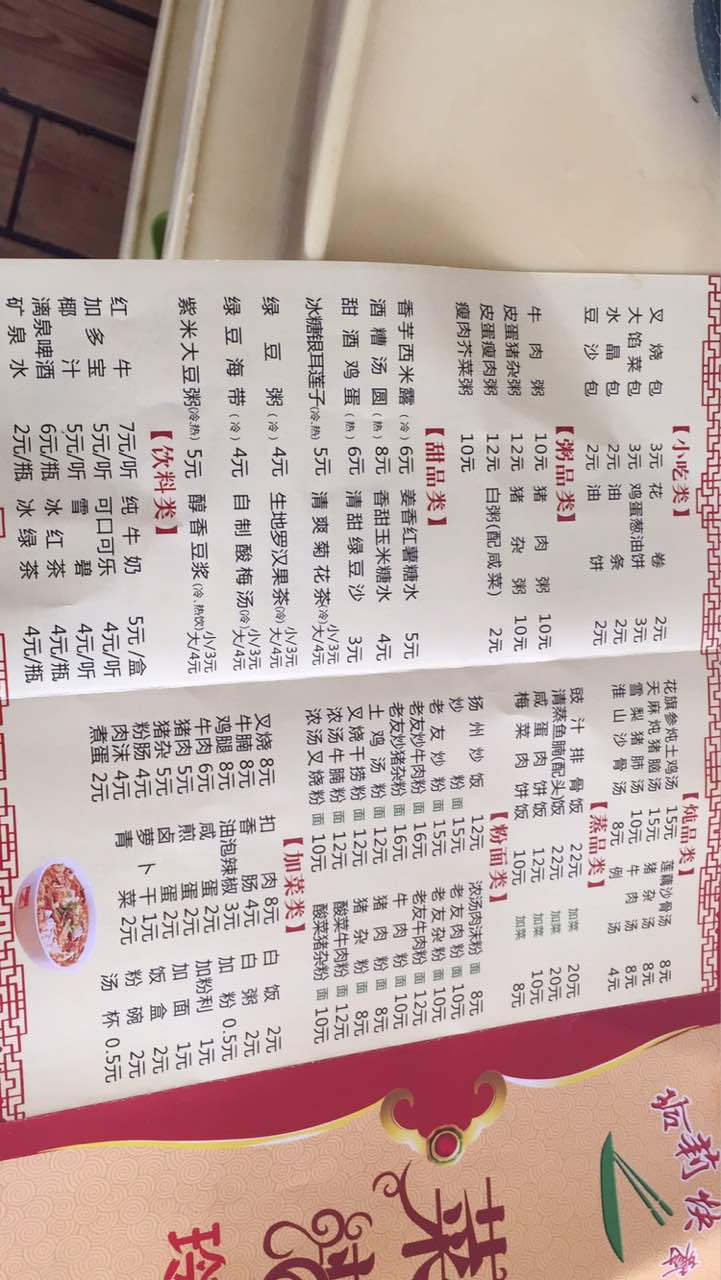 【小吃类】
叉烧包 3元 花卷 2元
大馅菜包 3元 鸡蛋葱油饼 3元
水晶包 2元 油条 2元
豆沙包 2元 油饼 2元
【粥品类】
牛肉粥 10元 猪肉粥 10元
皮蛋猪杂粥 12元 猪杂粥 10元
皮蛋瘦肉粥 12元 白粥(配咸菜) 2元
瘦肉芥菜粥 10元
【甜品类】
香芋西米露(冷) 6元 姜香红薯糖水 5元
酒糟汤圆(热) 8元 香甜玉米糖水 4元
甜酒鸡蛋(热) 6元 清甜绿豆沙 3元
冰糖银耳莲子(冷.热) 5元 清爽菊花茶(冷)小/3元 大/4元
绿豆粥(冷) 4元 生地罗汉果茶(冷)小/3元 大/4元
绿豆海带(冷) 4元 自制酸梅汤(冷)小/3元 大/4元
紫米大豆粥(冷.热) 5元 醇香豆浆(冷.热饮)小/3元 大/4元
【饮料类】
红牛 7元/听 纯牛奶 5元/盒
加多宝 5元/听 可口可乐 4元/听
椰汁 5元/听 雪碧 4元/听
漓泉啤酒 6元/瓶 冰红茶 4元/瓶
矿泉水 2元/瓶 冰绿茶 4元/瓶
【炖品类】
花旗参炖土鸡汤 15元 莲藕沙骨汤 8元
天麻炖猪脑汤 15元 猪杂汤 8元
雪梨猪肺汤 10元 牛肉汤 8元
淮山沙骨汤 8元 例汤 4元
【蒸品类】
豉汁排骨饭 22元 加菜 20元
清蒸鱼腩(配头)饭 22元 加菜 20元
咸蛋肉饼饭 12元 加菜 10元
梅菜肉饼饭 10元 加菜 8元
【粉面类】
扬州炒饭 12元 浓汤肉沫粉 面 8元
炒粉 面 15元 老友肉粉 面 10元
老友炒粉 面 15元 老友杂粉 面 10元
老友炒牛肉粉 面 16元 老友牛肉粉 面 12元
老友炒猪杂粉 面 16元 牛肉粉 面 10元
土鸡汤粉 面 12元 猪肉粉 面 8元
叉烧干捞粉 面 12元 猪杂粉 面 8元
浓汤牛腩粉 面 12元 酸菜牛肉粉 面 12元
浓汤叉烧粉 面 10元 酸菜猪杂粉 面 10元
【加菜类】
叉烧 8元 扣肉 8元 白饭 2元
牛腩 8元 香肠 4元 白粥 2元
鸡腿 8元 油泡辣椒 3元 加粉 0.5元
牛肉 6元 咸蛋 2元 加粉利 1元
猪肉 5元 煎蛋 2元 加面 1元
猪杂 5元 卤蛋 2元 饭盒 2元
粉肠 4元 萝卜干 1元 粉碗 2元
肉沫 4元 青菜 2元 汤杯 0.5元
煮蛋 2元
莉快餐
菜谱